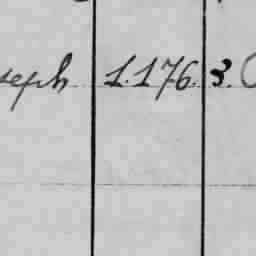 seph 1.176. 3.